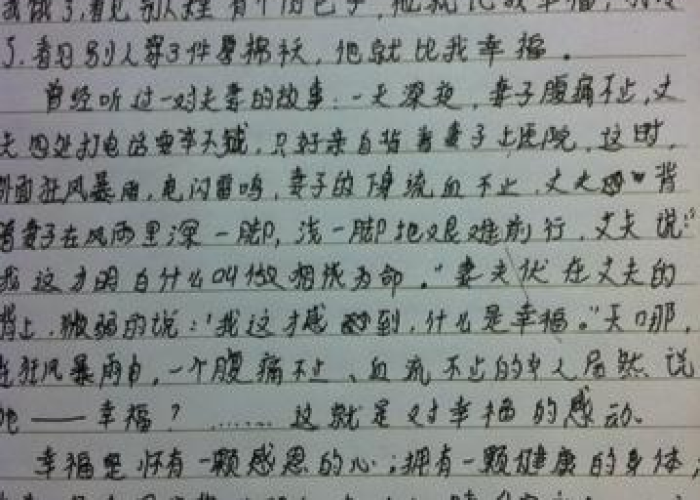 我饿了,看见别人拿有个肉包子,他就比我幸福,我冷
了.看见别人穿了件厚棉袄,他就比我幸福。
曾经听过一对夫妻的故事:一天深夜,妻子腹痛不止,丈
夫四处打电话要车不成,只好亲自背着妻子上医院.这时,
外面狂风暴雨,电闪雷鸣,妻子的下身流血不止.丈夫背
着妻子在风雨里深一脚,浅一脚地艰难前行,丈夫说:"
我这才明白什么叫做相依为命。"妻夫伏在丈夫的
背上.微弱的说:"我这才感到,什么是幸福。"天哪,
在狂风暴雨中,一个腹痛不止、血流不止的女人居然说
她——幸福?……这就是对幸福的感动.
幸福是怀有一颗感恩的心;拥有一颗健康的身体;